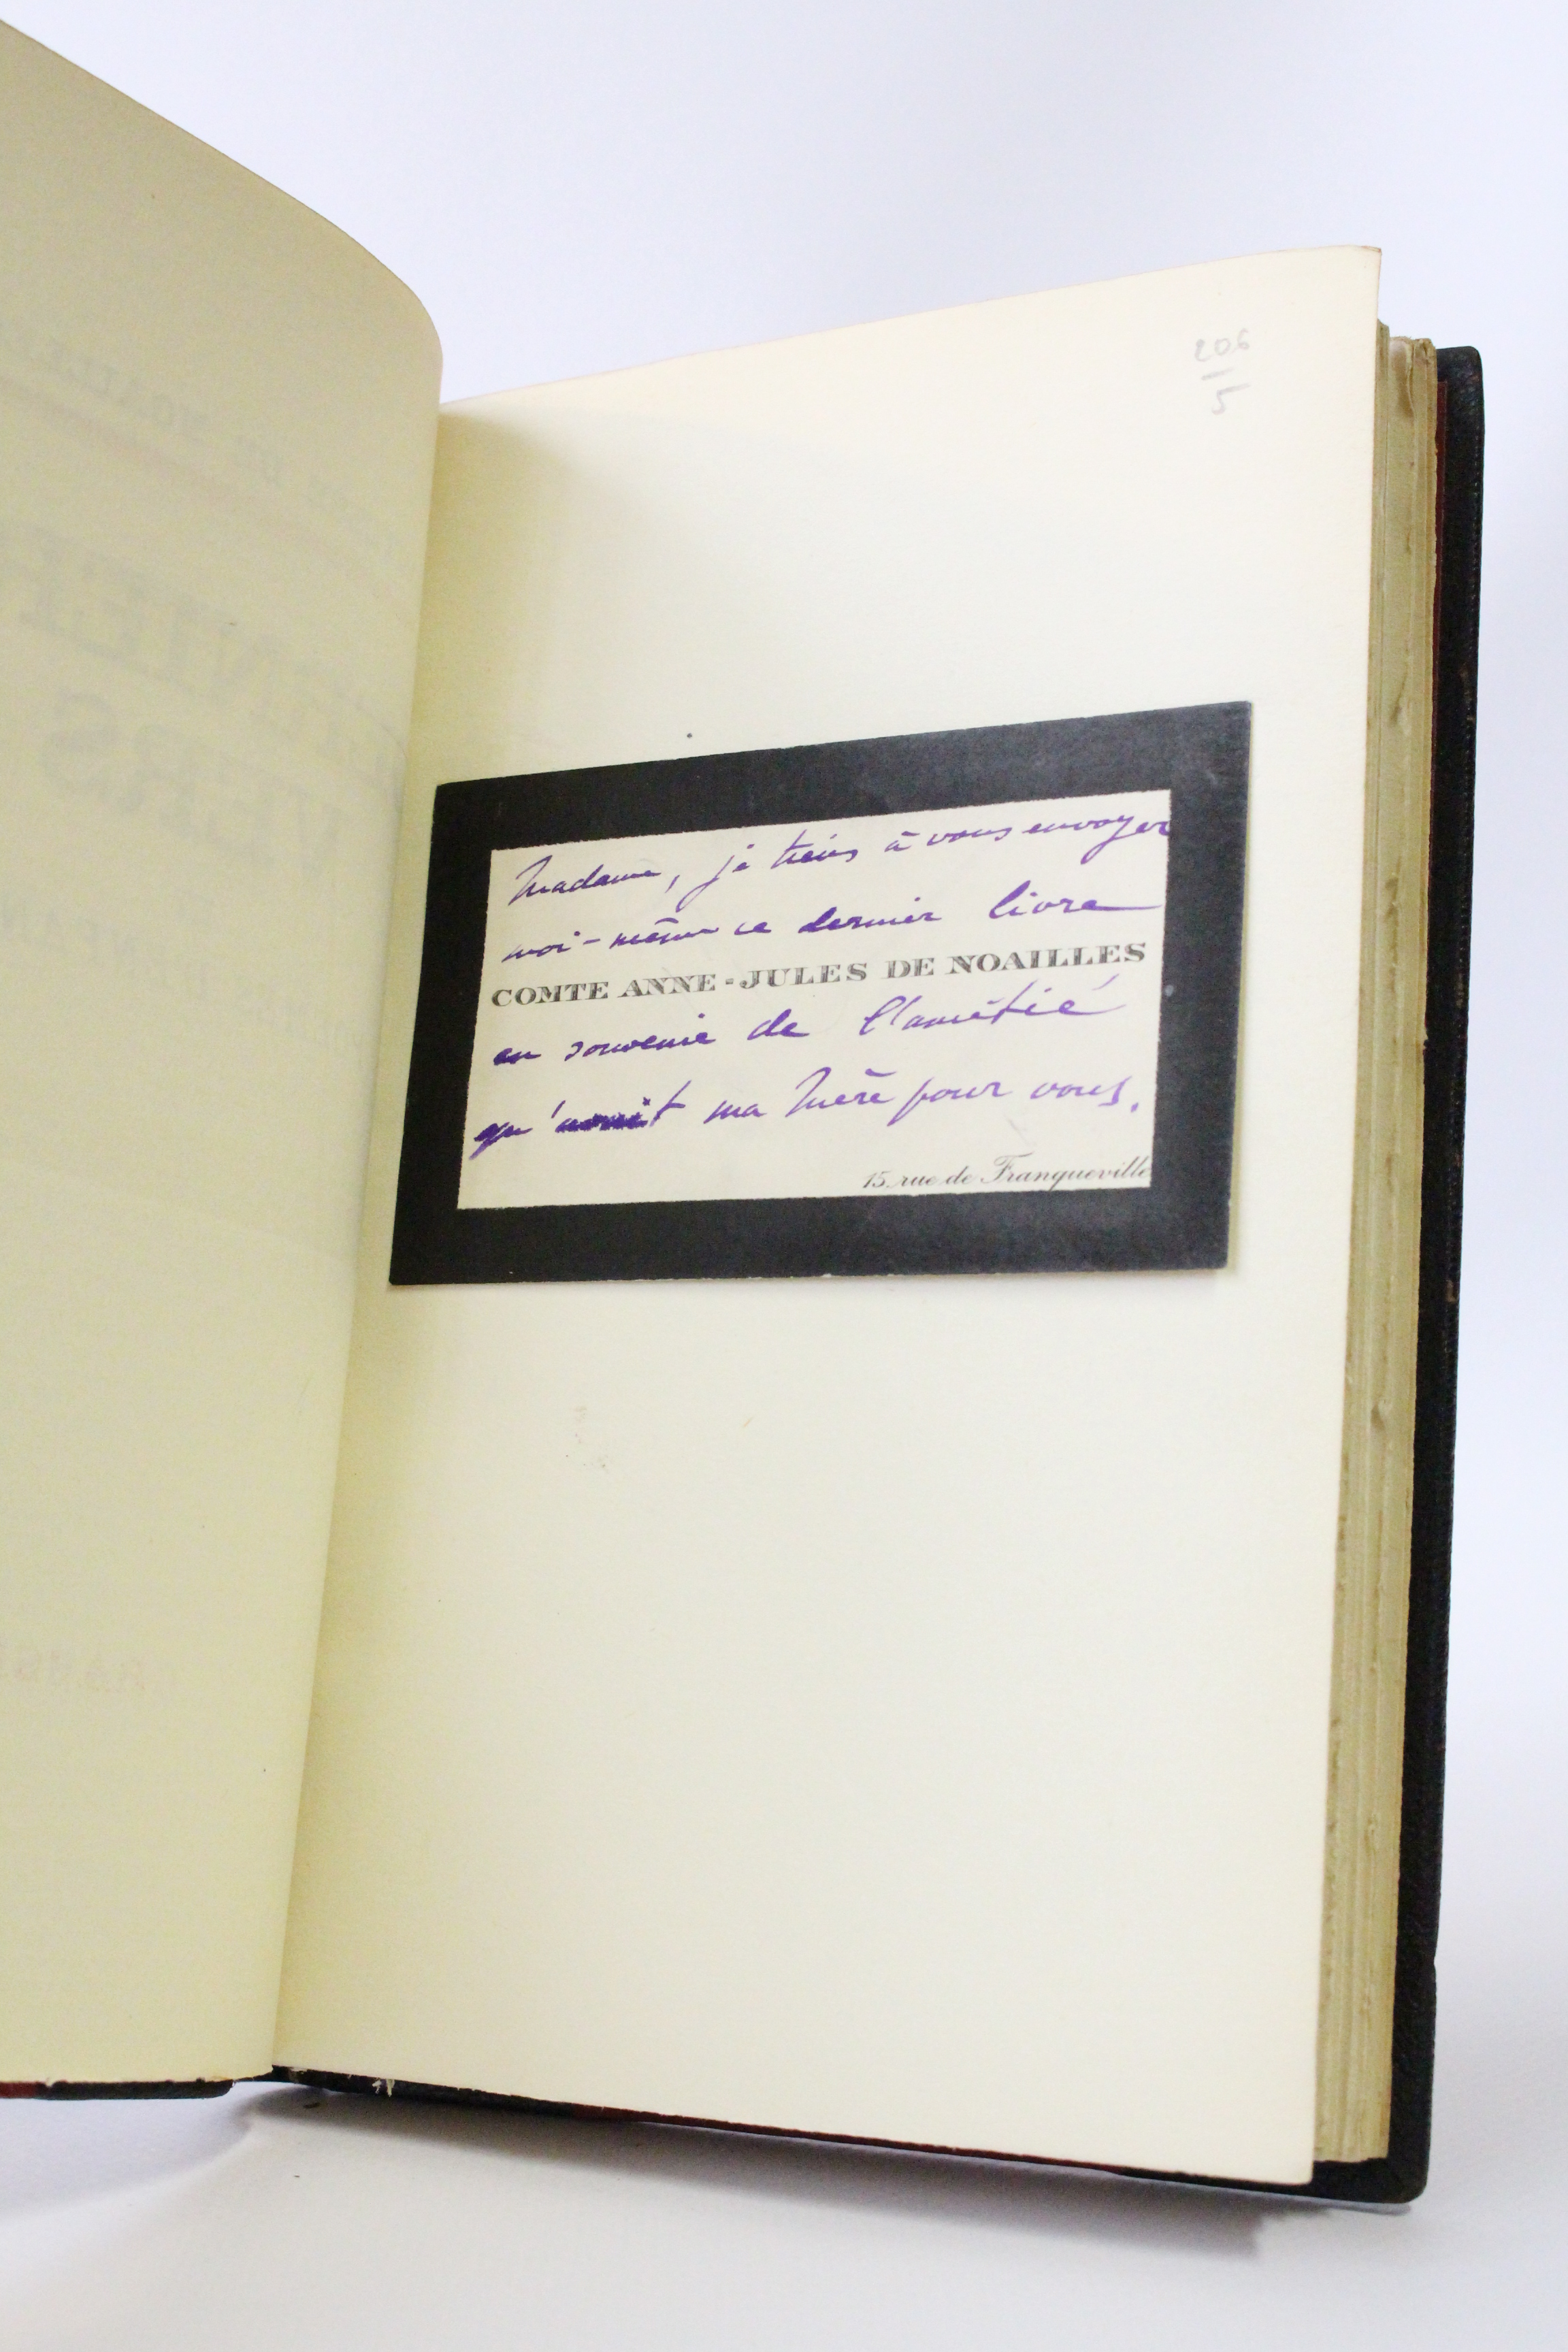 206
5
Madame, je tiens à vous envoyer
moi-même ce dernier livre
COMTE ANNE-JULES DE NOAILLES
en souvenir de l'amitié
qu'avait ma Mère pour vous.
15, rue de Franqueville